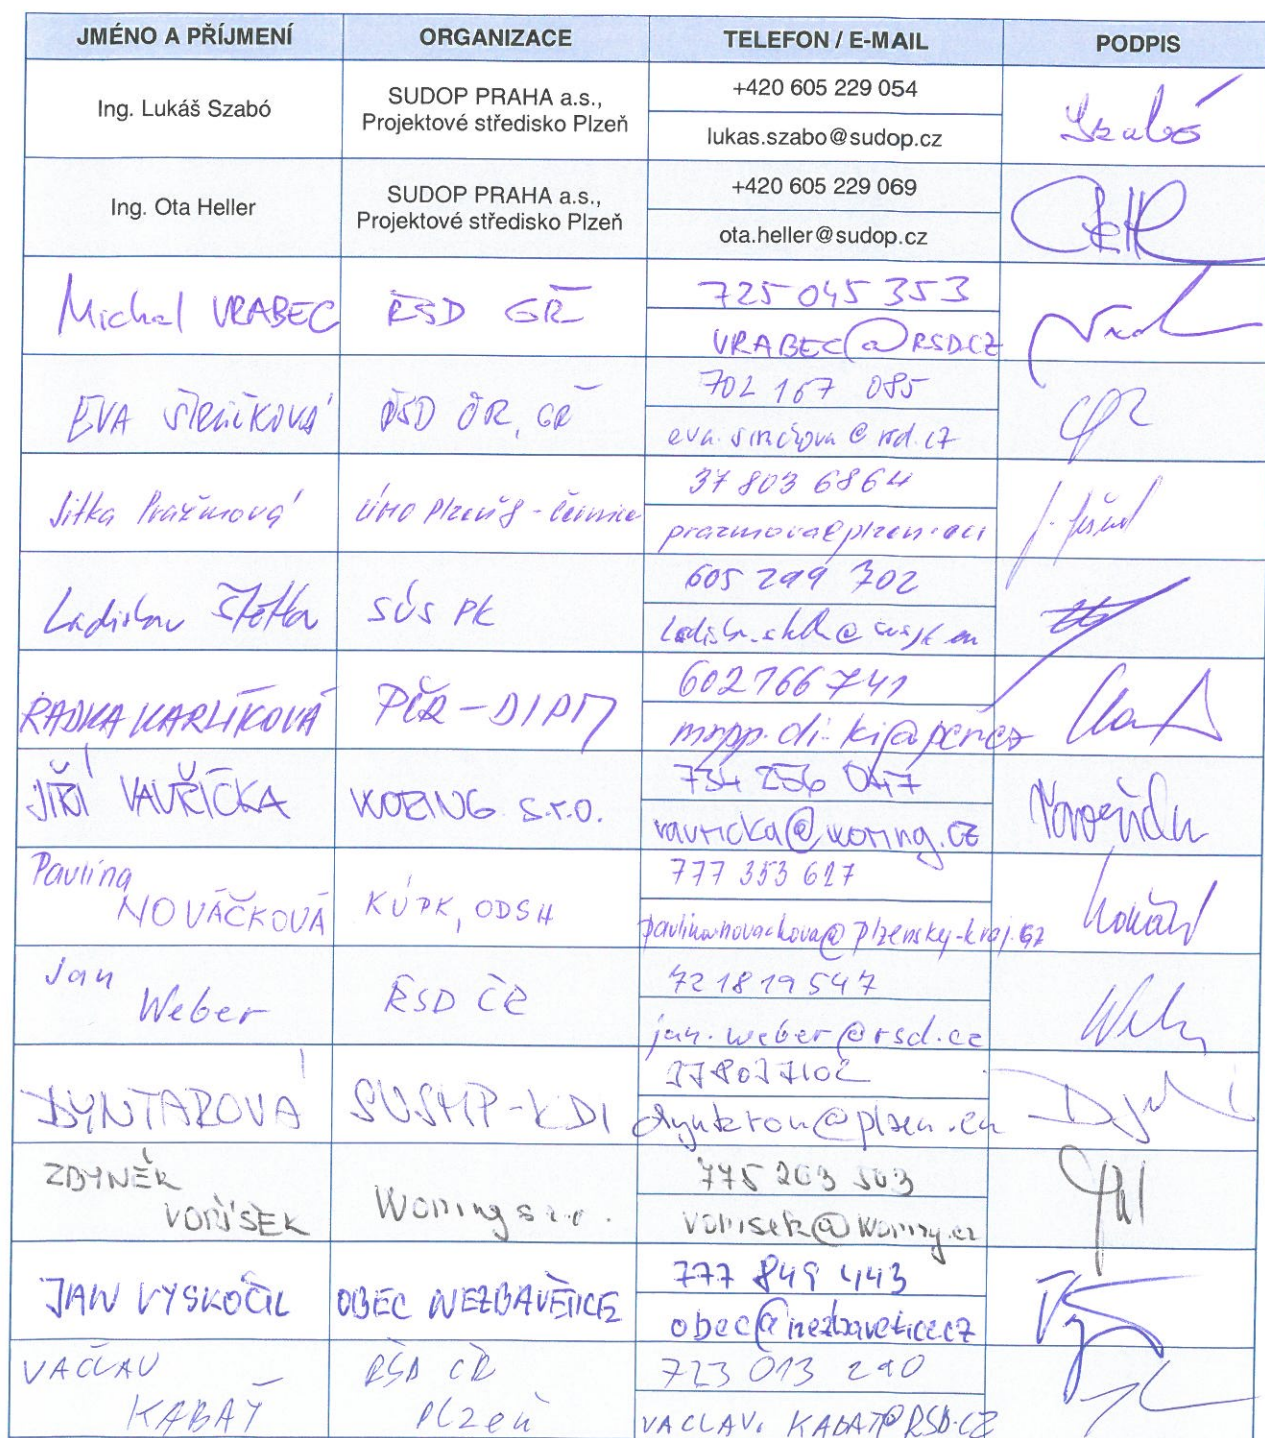 JMÉNO A PŘÍJMENÍ ORGANIZACE TELEFON / E-MAIL PODPIS
Ing. Lukáš Szabó
SUDOP PRAHA a.s.,
Projektové středisko Plzeň
+420 605 229 054
lukas.szabo@sudop.cz
Szabó
Ing. Ota Heller
SUDOP PRAHA a.s.,
Projektové středisko Plzeň
+420 605 229 069
ota.heller@sudop.cz
Michal VRABEC
ŘSD GŘ
725 045 353
VRABEC@RSD.CZ
EVA
ŘSD ČR, GŘ
702 167 085
Jitka Pražmová
ÚMO Plzeň 8 - Černice
37 803 6864
Ladislav
SÚS PK
605 299 702
RADKA KARLÍKOVÁ
PČR - DI PM
602166741
JIŘÍ VAVŘIČKA
WORING s.r.o.
734 256 047
vavricka@woring.cz
Pavlína
NOVÁČKOVÁ
KÚPK, ODSH
777 353 627
pavlina.novackova@plzensky-kraj.cz
Jan
Weber
ŘSD ČR
721819547
jan.weber@rsd.cz
DYNTAROVÁ
SVSMP-KDI
378037102
ZBYNĚK
VOŘÍŠEK
Woring s.r.o.
775 263 503
vorisek@woring.cz
JAN VYSKOČIL
OBEC NEZBAVĚTICE
777 849 443
obec@nezbavetice.cz
VÁCLAV
KABÁT
ŘSD ČR
Plzeň
723 013 290
VACLAV.KABAT@RSD.CZ